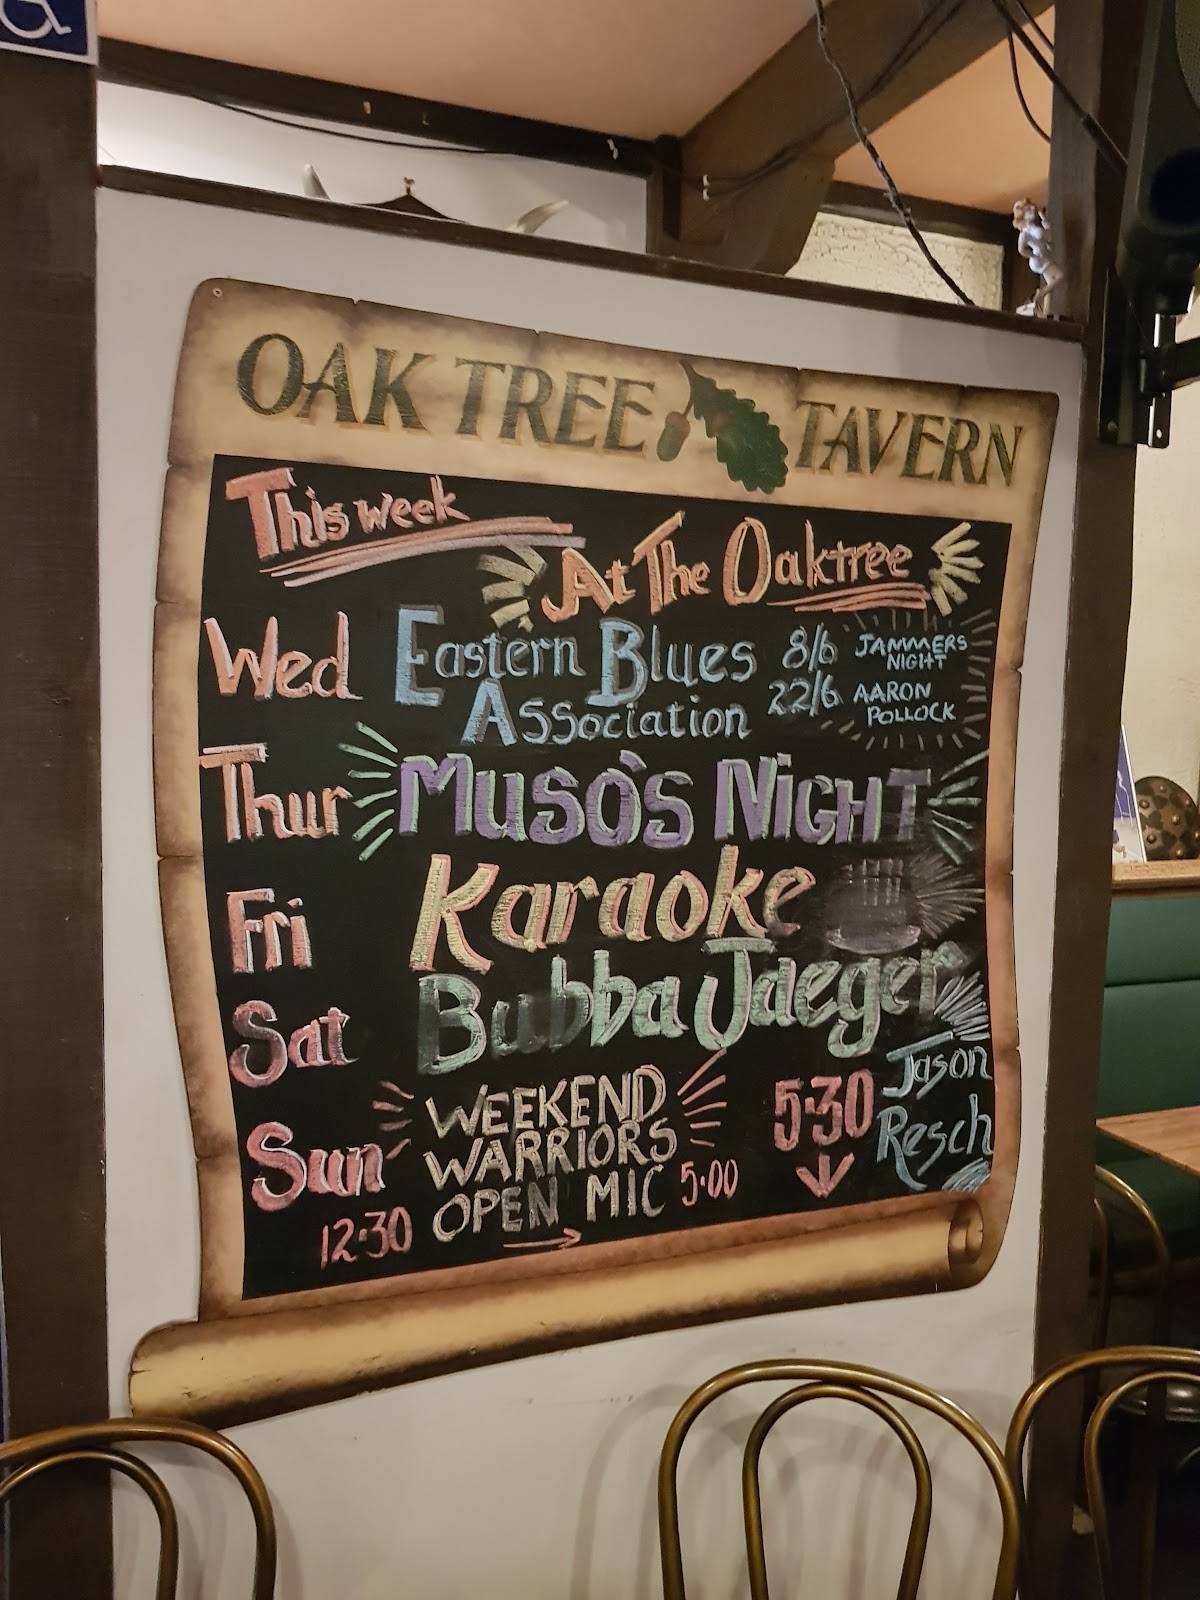 OAK TREE TAVERN
This week
At The Oaktree
Wed Eastern Blues Association
8/6 JAMMERS NIGHT
22/6 AARON POLLOCK
Thur MUSO'S NIGHT
Fri Karaoke
Sat Bubba Jaeger
Sun WEEKEND WARRIORS
12:30 OPEN MIC 5.00
5.30 Jason Resch